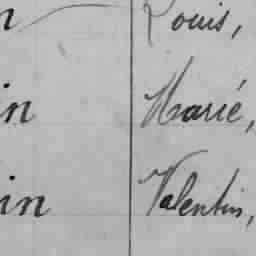 n Louis,
in Marié,
in Valentin,